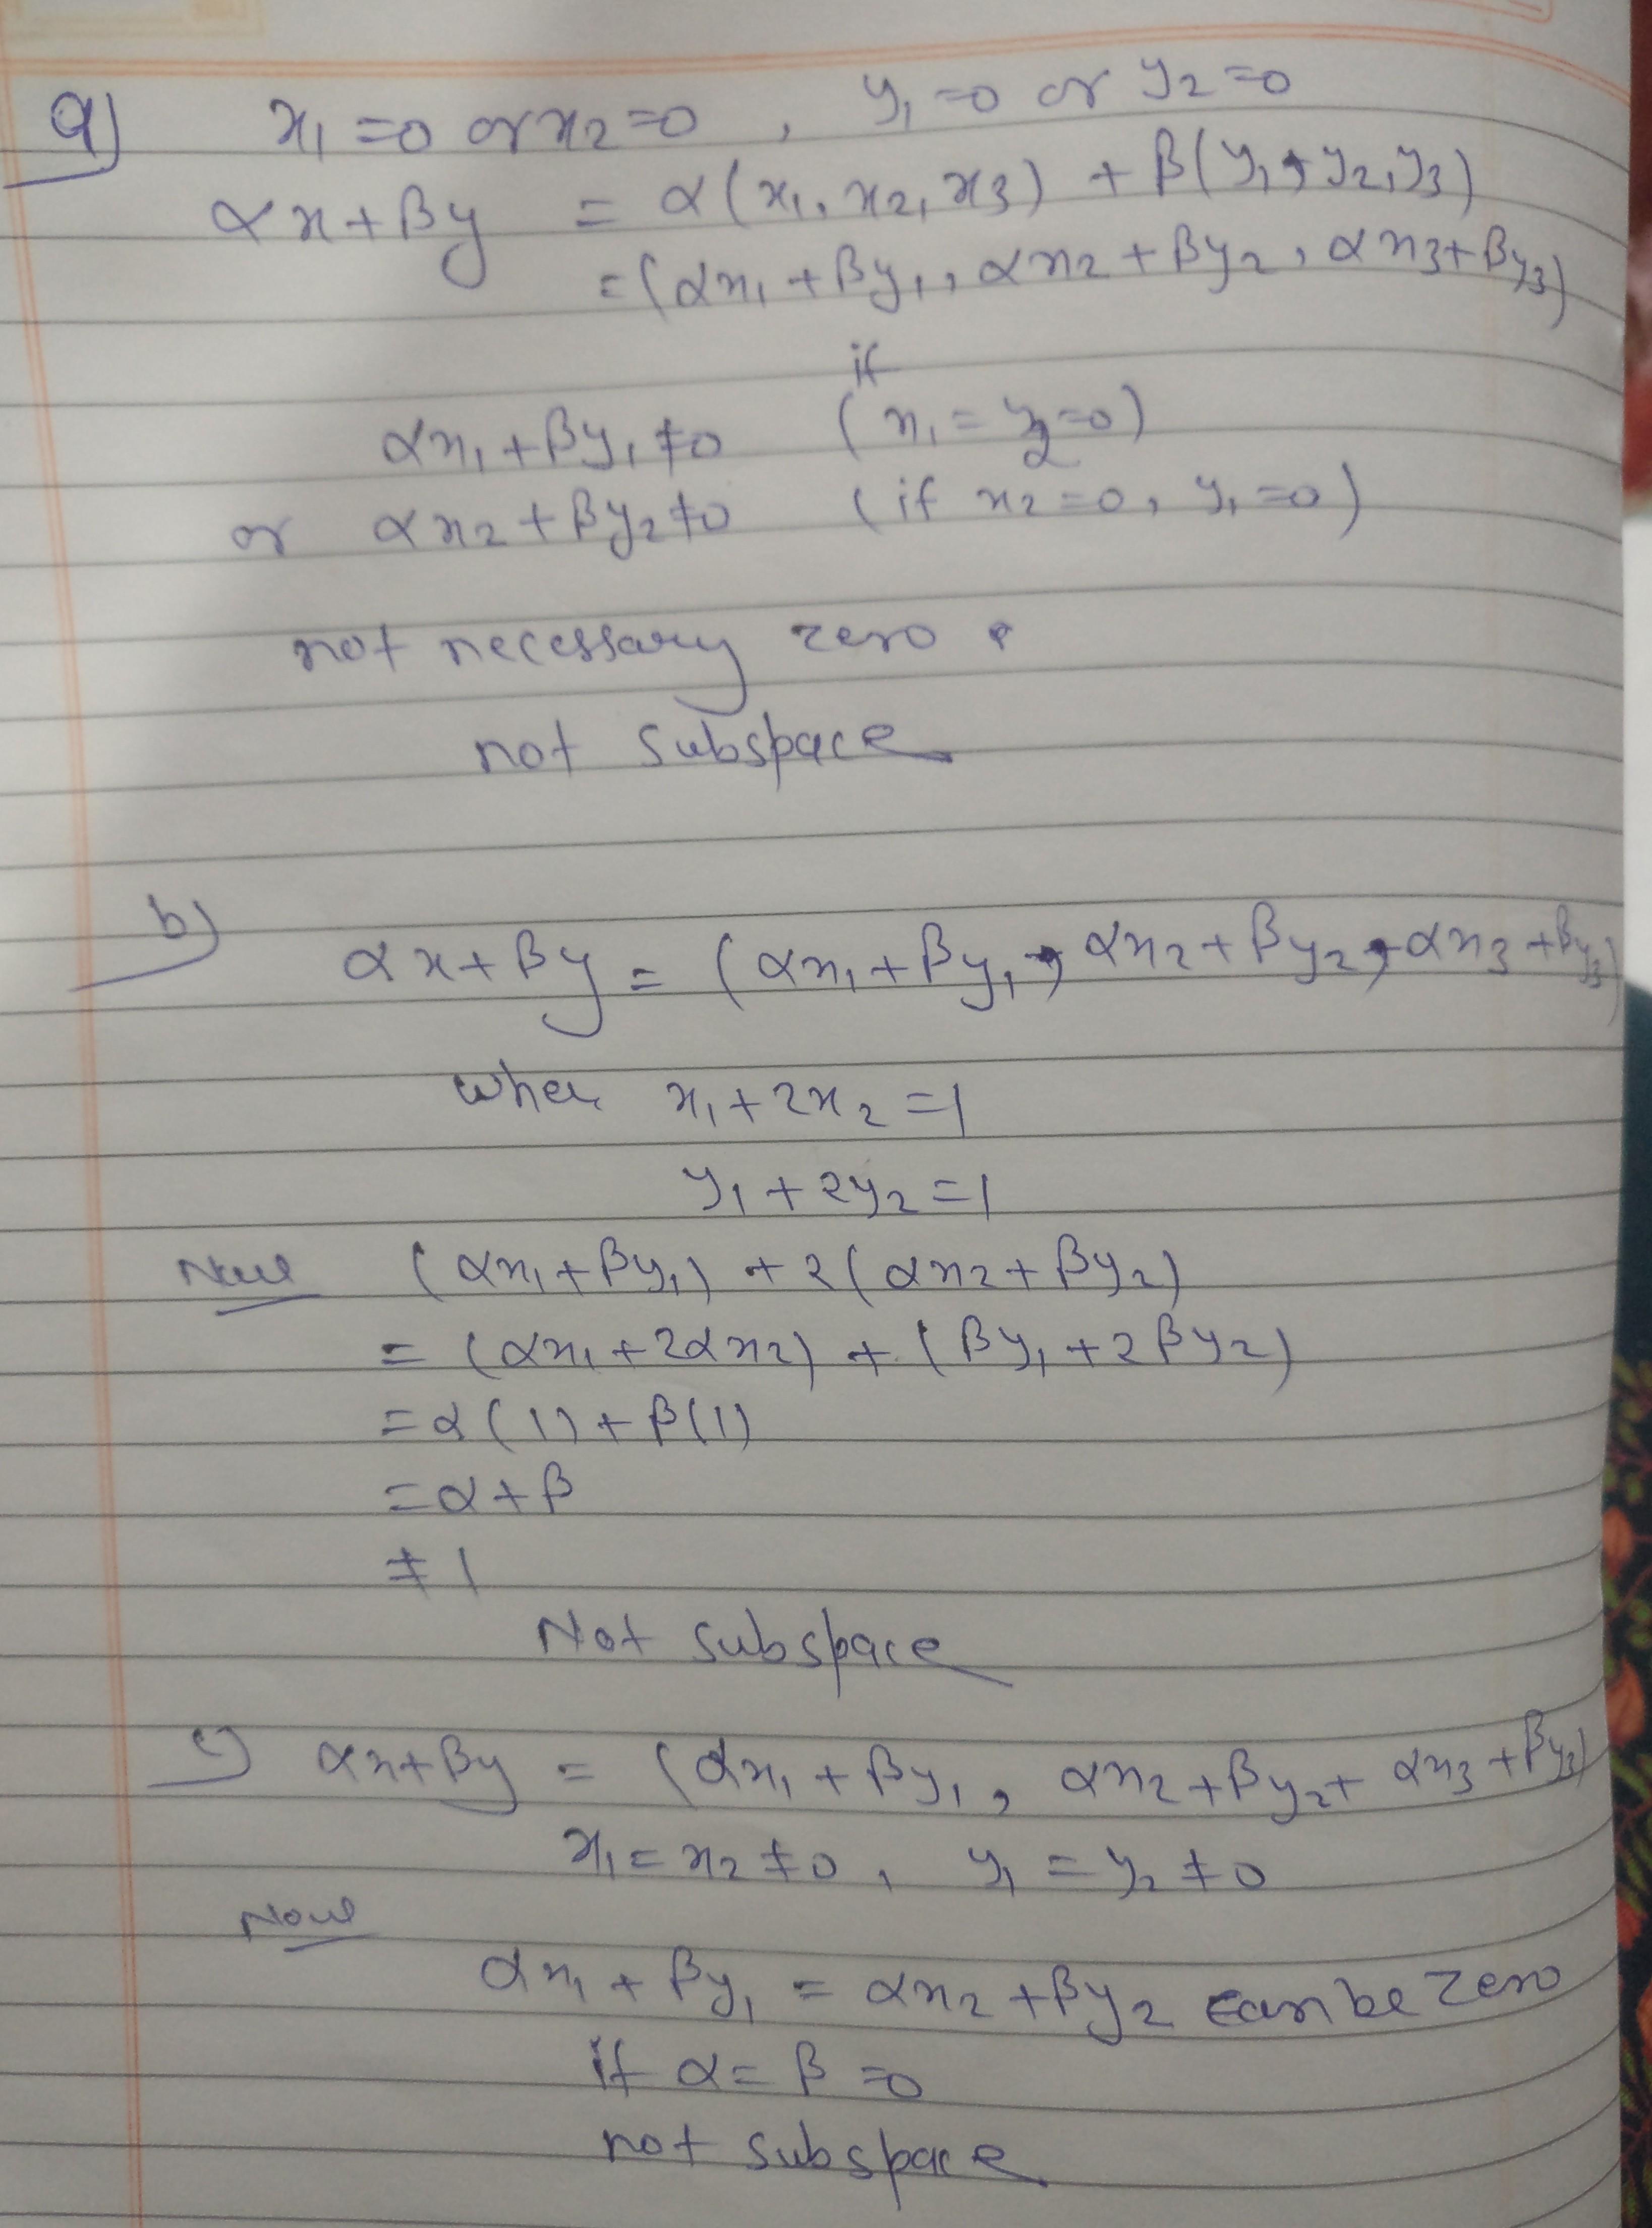 a) x₁ = 0 or x₂ = 0 , y₁ = 0 or y₂ = 0
αx + βy = α(x₁, x₂, x₃) + β(y₁, y₂, y₃)
= (αx₁ + βy₁, αx₂ + βy₂, αx₃ + βy₃)
if
αx₁ + βy₁ ≠ 0 (x₁ = y₂ = 0)
or αx₂ + βy₂ ≠ 0 (if x₂ = 0, y₁ = 0)
not necessary zero .
not subspace
b)
αx + βy = (αx₁ + βy₁, αx₂ + βy₂, αx₃ + βy₃)
when x₁ + 2x₂ = 1
y₁ + 2y₂ = 1
Now (αx₁ + βy₁) + 2(αx₂ + βy₂)
= (αx₁ + 2αx₂) + (βy₁ + 2βy₂)
= α(1) + β(1)
= α + β
≠ 1
Not subspace
c) αx + βy = (αx₁ + βy₁, αx₂ + βy₂ + αx₃ + βy₃)
x₁ = x₂ ≠ 0 , y₁ = y₂ ≠ 0
Now
αx₁ + βy₁ = αx₂ + βy₂ can be zero
if α = β = 0
not subspace